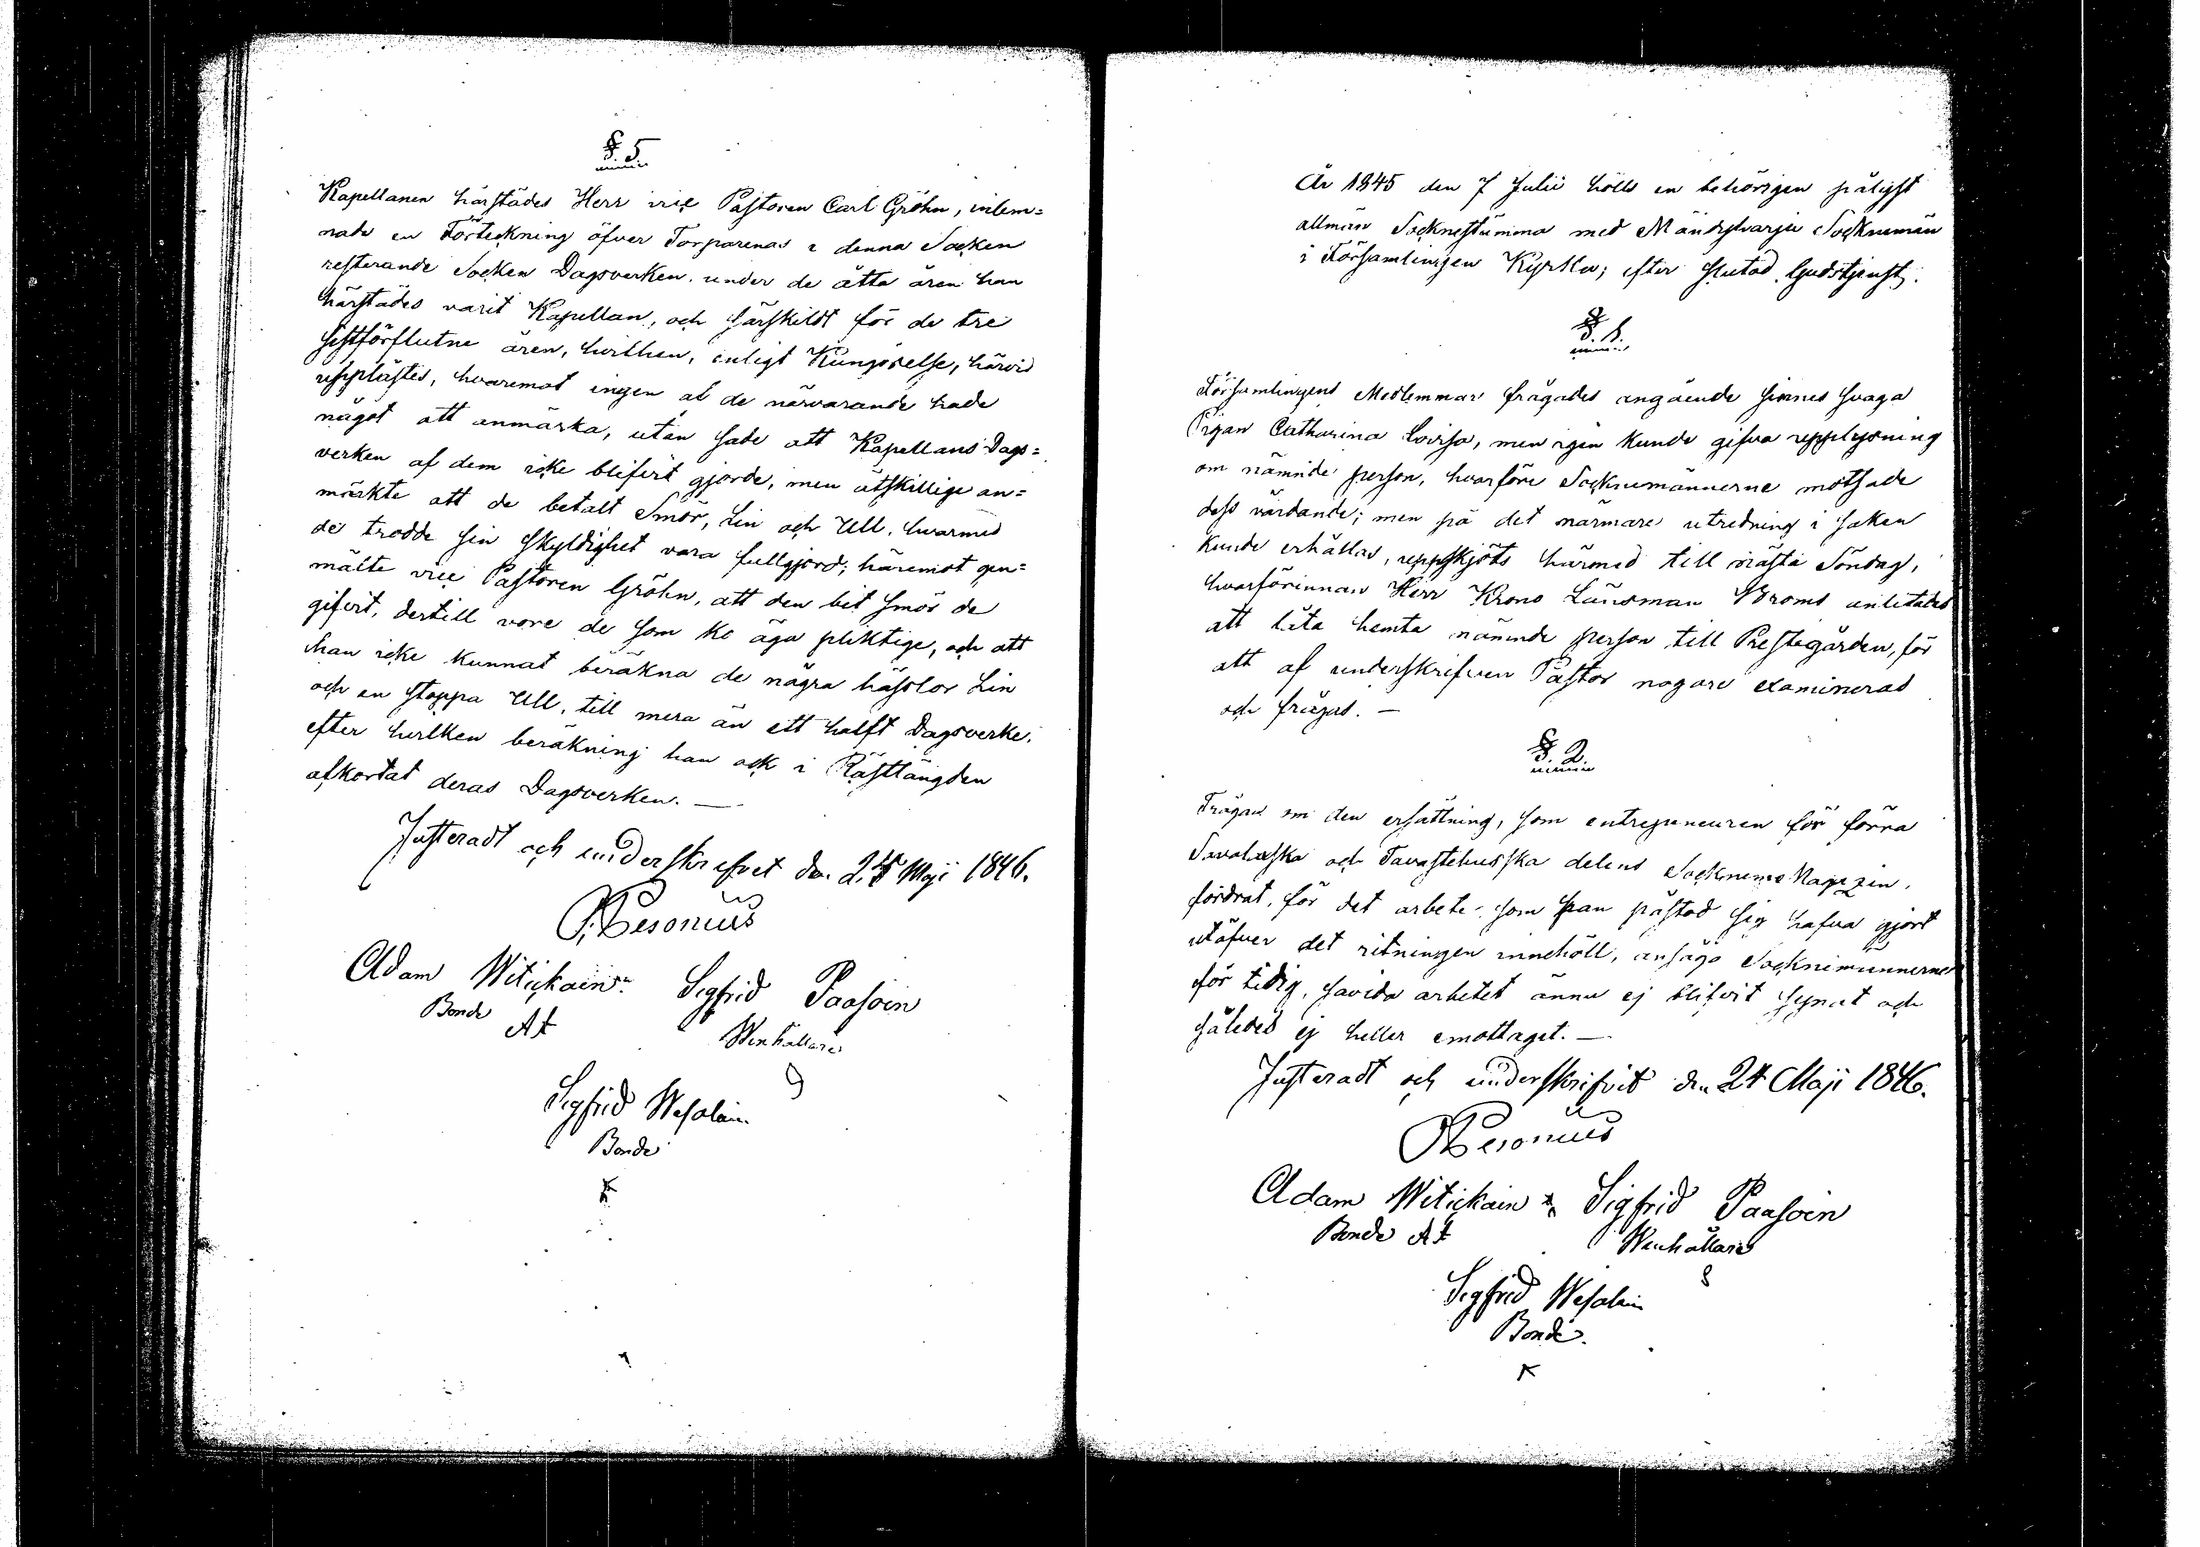 § 5
Kapellanen härstädes Herr vice Pastoren Carl Gröhn, inlem=
nade en Förteckning öfver Torparenas i denna Socken
resterande Socken Dagsverken under de åtta åren han
härstädes varit Kapellan, och särskildt för de tre
sistförflutne åren, hvilken, enligt Kungörelse, härvid
upplästes, hvaremot ingen af de närvarande hade
något att anmärka, utan sade att Kapellans Dags=
verken af dem icke blifvit gjorde, men åtskillige an=
märkte att de betalt Smör, Lin och Ull, hvarmed
de trodde sin skyldighet vara fullgjord; häremot gen=
mälte vice Pastoren Gröhn, att den bit Smör de
gifvit, dertill vore de som ko äga pliktige, och att
han icke kunnat beräkna de några hässlor Lin
och en stoppa Ull, till mera än ett halft Dagsverke,
efter hvilken beräkning han ock i Rästlängden
afkortat deras Dagsverken. —
Justeradt och underskrefvet den 24 Maji 1846.
Adam Witickain
Sigfrid Paasoin
Bonde
Sigfrid Wesalain
Bonde
År 1845 den 7 Julii hölls en behörigen pålyst
allmän Socknestämma med Mäntyharju Socknemän
i Församlingen Kyrka; efter slutad Gudstjenst.
§. 1.
Församlingens Medlemmar frågades angående sinnes svaga
Pigan Catharina Lovisa, men igen kunde gifva upplysning
om nämnde person, hvarföre Socknemännerne motsade
dess vårdande; men på det närmare utredning i saken
kunde erhållas, uppskjöts härmed till nästa Söndag,
hvarförinnan Herr Krono Länsman Broms anlitades
att låta hemta nämnde person till Prestegården, för
att af underskrifven Pastor nogare examineras
och frågas. —
§. 2.
Frågan om den ersättning, som entrepreneuren för förra
Savolaxska och Tavastehusska delens Sockneme Magazin,
fordrat, för det arbete som han påstod sig hafva gjort
utöfver det ritningen innehöll, ansågo Socknemännerne
för tidig, savida arbetet ännu ej blifvit synat och
således ej heller emottaget. —
Justeradt och underskrifvit den 24 Maji 1846.
Adam Witickain
Sigfrid Paasoin
Bonde
Sigfrid Wesalain
Bonde.